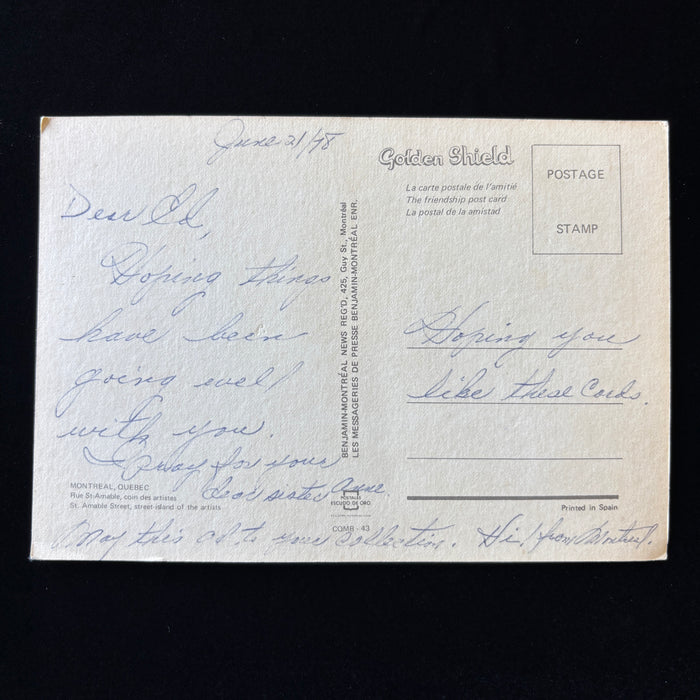 June 21/78
Dear Ed,
Hoping things
have been
going well
with you.
I pray for your
dear sister Anne.
May this ad to your Collection. Hi! from Montreal.
MONTREAL, QUEBEC
Rue St-Amable, coin des artistes
St. Amable Street, street-island of the artists
BENJAMIN-MONTRÉAL NEWS REG'D, 425, Guy St., Montréal
LES MESSAGERIES DE PRESSE BENJAMIN-MONTRÉAL ENR.
POSTALES
ESCUDO DE ORO
COMB - 43
Golden Shield
La carte postale de l'amitié
The friendship post card
La postal de la amistad
POSTAGE
STAMP
Hoping you
like these Cards.
Printed in Spain